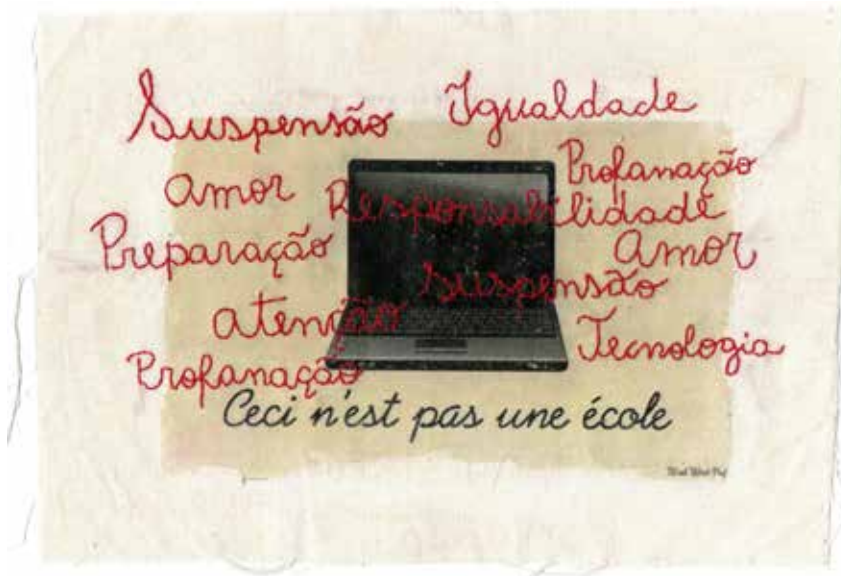 Suspensão Igualdade
Profanação
amor Responsabilidade
Preparação amor
Suspensão
atenção Tecnologia
Profanação
Ceci n'est pas une école